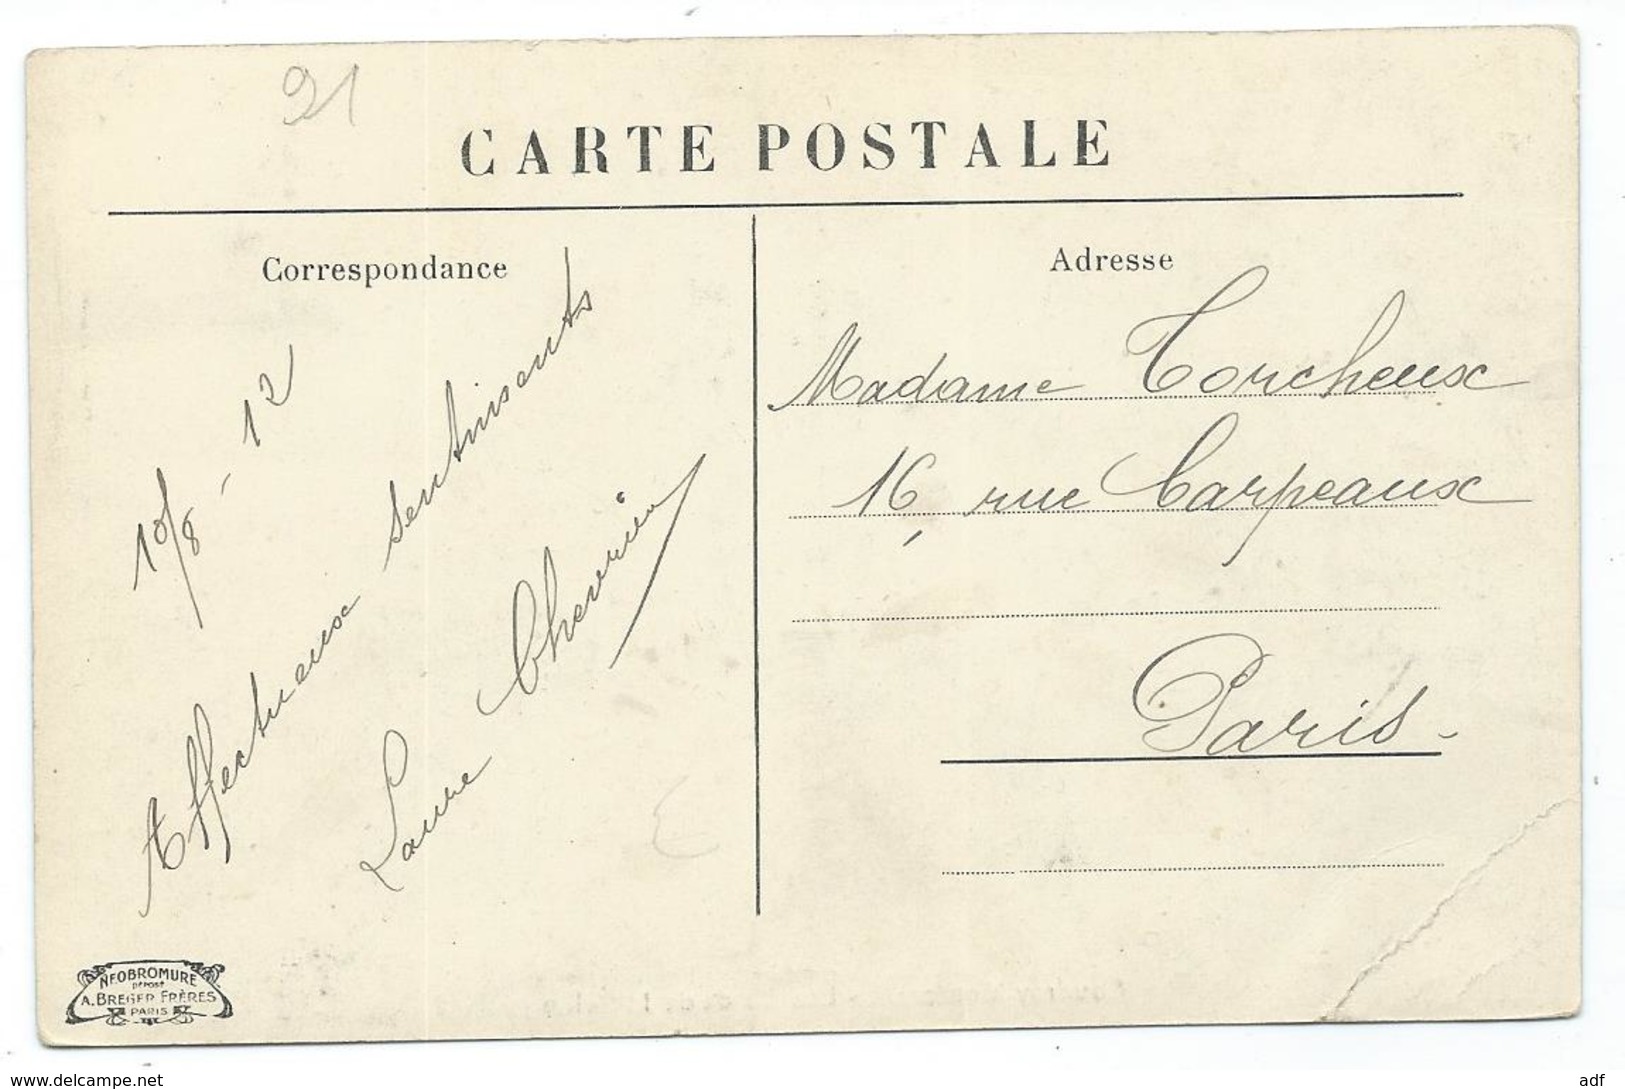 91
CARTE POSTALE
Correspondance
Adresse
10/8 - 12
Affectueux sentiments
Laure Chevrier
Madame Torcheux
16, rue Carpeaux
Paris -
NEOBROMURE
DEPOSÉ
A. BREGER FRÈRES
PARIS
www.delcampe.net
adf